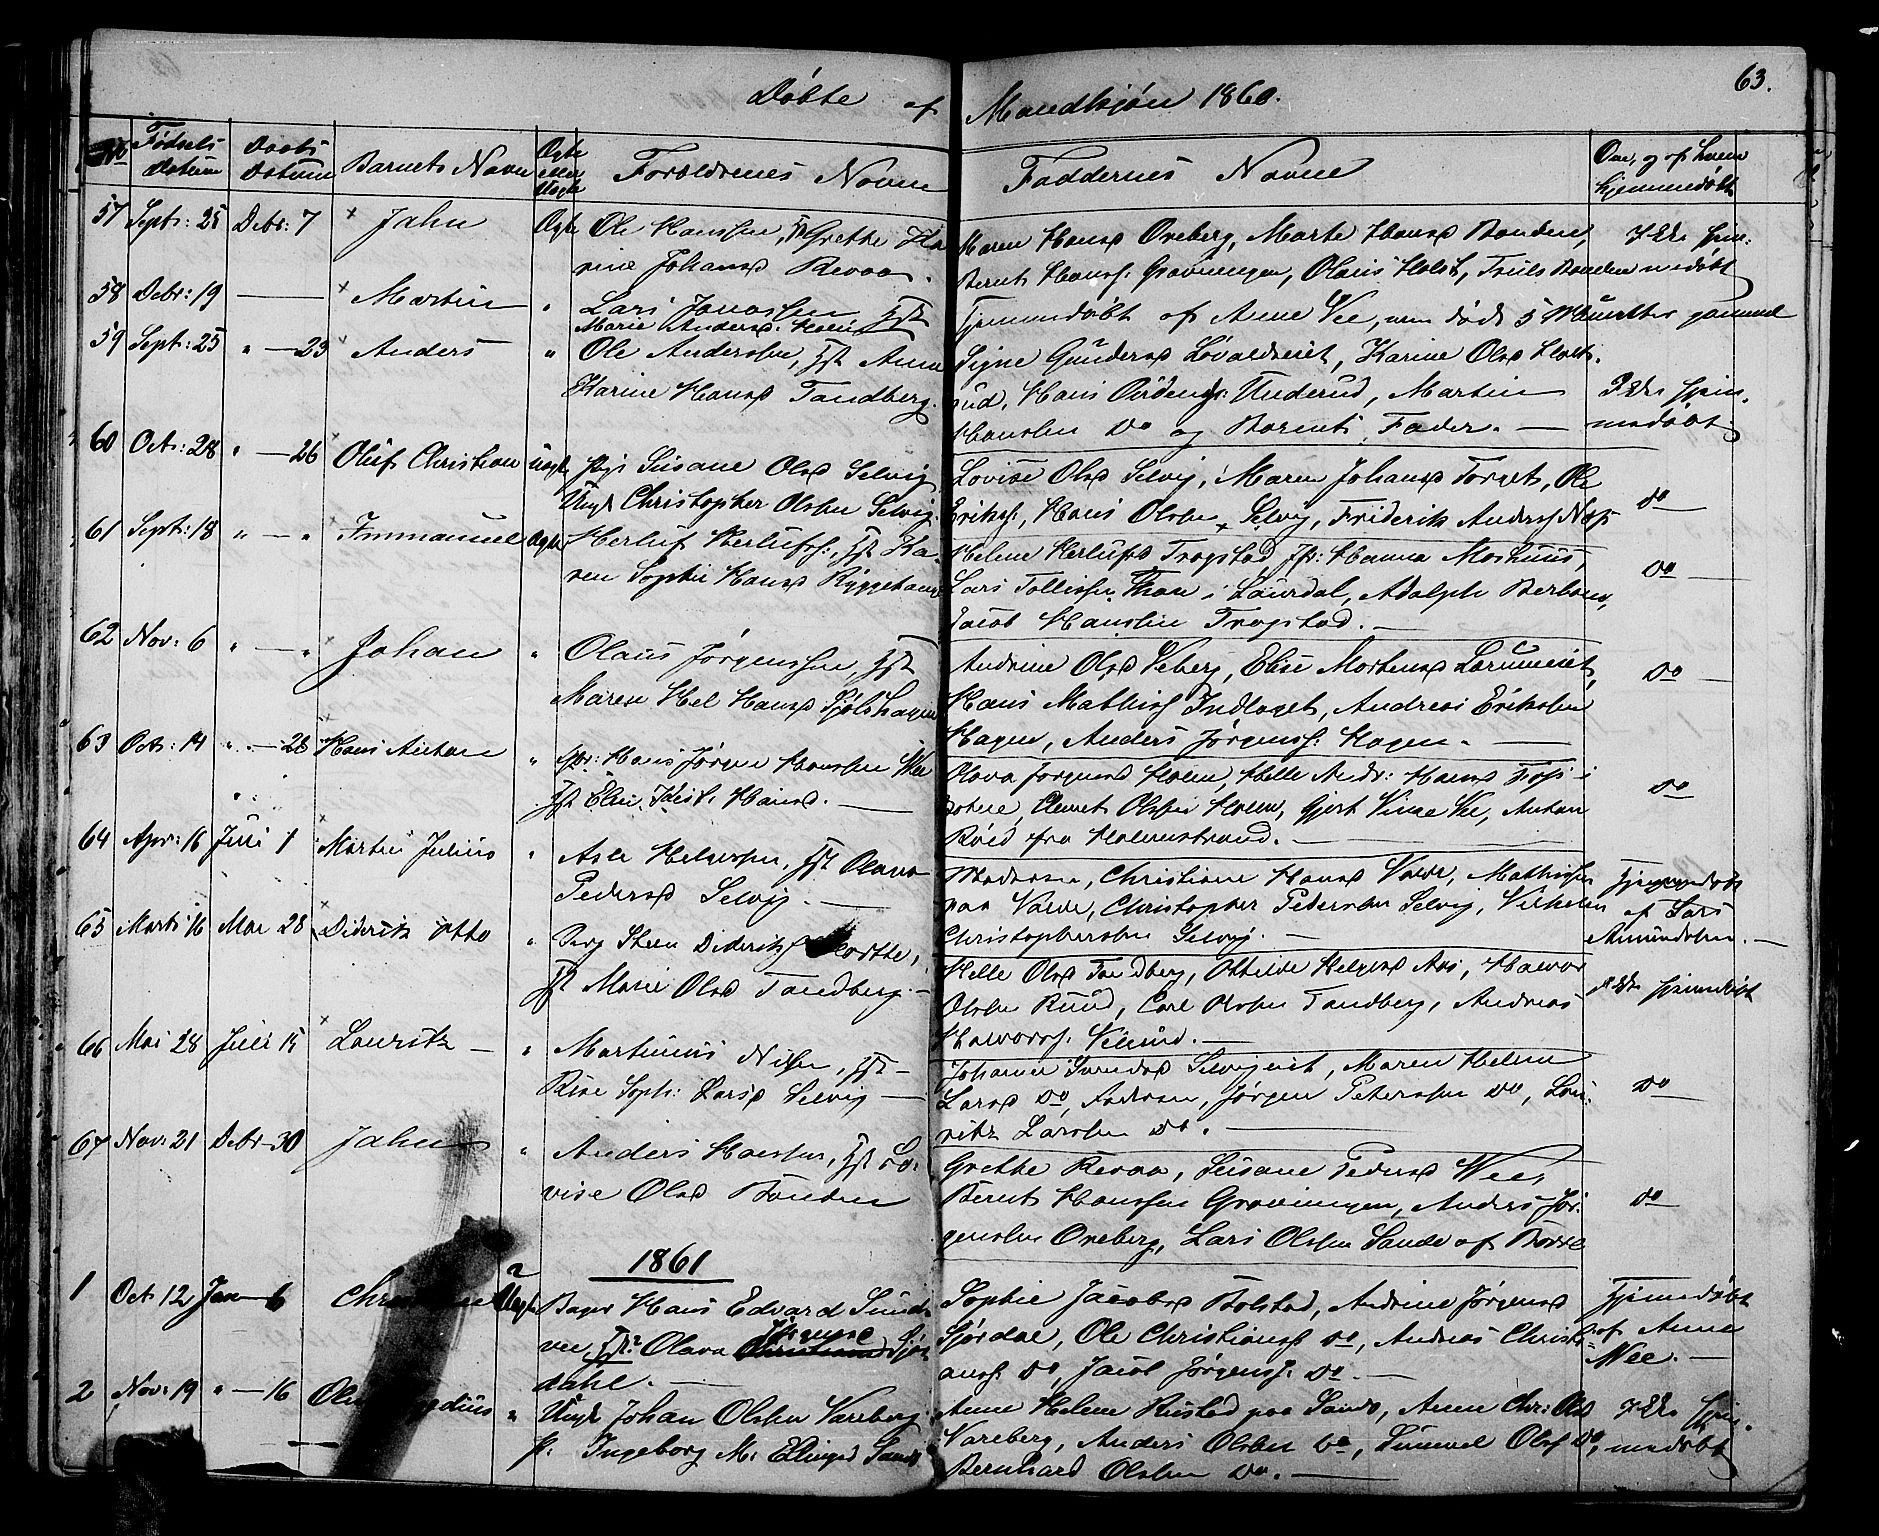 Døbte af Mandkjøn 1860. 63.
No Fødsels Datum Daabs Datum Barnets Navn Ægte eller Uægte Forældrenes Navne Faddernes Navne
hjemmedøbt
57 Sept: 25 Debr: 7 Jahn Ægte Ole Hanssen, Grethe Ka-
rine Johansd Revaa.
Maren Hansd Oreberg, Marte Hansd Bonden,
Bernt Hanss. Gravningen, Olaus Holst, Truls Bonden
Ikke hjem-
medøbt
58 Debr: 19 — Martin " Lars Jonassen Hst
Marie Andersd. Holm
Hjemmedøbt af Anne Vee, men døde 5 gammel
59 Sept: 25 " — 23 Anders " Ole Anderssen, Hst Anne
Karine Hansd Tandberg.
Signe Gundersd Løvaldseiet, Karine Olsd
Hans Underud, Martin
Hanssen Do og Barnets Fader. —
Ikke hjem-
medøbt
60 Oct: 28 " — 26 Oluf Christian Uægte Pige Susane Olsd Selvig
Ungk Christopher Olssen Selvig.
Lovise Olsd Selvig, Maren Johansd Torget, Ole
Eriks., Hans Olssen Selvig, Friderik Anders Næs
Do —
61 Sept: 18 " — " Immanuel Ægte Herluf Herlufs:, Hst Ka-
ren Sophie Hansd Ryggehaug
Helene Herlufsd Trogstad, Jfr: Hanna Moshuus,
Lars Tollissen Thon i Laurdal, Adolph Berbom,
Jacob Hanssen Trogstad. —
Do —
62 Nov: 6 " — " Johan " Olaus Jørgenssen, Hst
Maren Hel Hansd Sjølshagen
Andrine Olsd Veberg, Elise Mortensd
Hans Mathiss Indlaget, Andreas Eriksen
Hagen, Anders Jørgenss: Hagen. —
Do —
63 Oct: 14 " — 28 Hans Anton " Hans Jørgen Hanssen Vee
Hst Elen Hansd. —
Olava Jørgensd Holm, Helle Andr: Hansd Foss i
Botne, Olssen Holm, Gjert Vee, Anton
Røed fra Holmestrand. —
Do —
64 Apr: 16 Juli 1 Martin Julius " Asle Helgessen, Hst Olava
Pedersd Selvig. —
Moderen, Christiane Hansd Valde, Mathis
paa Valde, Christopher Pederssen Selvig, Vilhelm
Christopherssen Selvig. —
Hjemmedøbt
af Lars
Amundssen. —
65 Marts 16 Mai 28 Diderik Otto " Steen Diderik
Hst Marie Olsd Tandberg. —
Helle Olsd Tandberg, Ottilde Helgesd Aas, Halvor
Olssen Ruud, Carl Olssen Tandberg, Andreas
Halvorss. —
Ikke hjemmedøbt
66 Mai 28 Juli 15 Lauritz — " Martinius Nilsen, Hst —
Rise Soph: Larsd Selvig —
Johanne Selvigeiet, Maren Helene
Larsd Do, Faderen, Jørgen Peterssen Do, Lau-
ritz Larssen Do. —
Do —
67 Nov: 21 Debr — 30 Jahn " Anders Hanssen, Hst Lo-
vise Olsd Bonden
Grethe Revaa, Susane Pedersd Wee,
Bernt Hanssen Gravningen, Anders Jør-
gensen Oreberg, Lars Olssen Sande af Borre
Do —
1861
1 Oct 12 Jan 6 Uægte Bager Hans Edvard Sund-
vee, Olava Jørgensd Sjør-
dahl. —
Sophie Jacobsd Bolstad, Andrine Jørgensd
Sjørdal, Ole Christians Do, Andreas Christi-
anss. Do, Jacob Jørgenss. Do. —
Hjemmedøbt
af Anne
Wee. —
2 Nov: 19 " — 16 " Ungk Johan Olssen Vareberg.
P. Ingeborg M. Ellingsd Sande
Anne Helene Rustad paa Sande, Anne Chr: Olsd
Vareberg, Anders Olssen Do, Simmel Olss Do,
Bernhard Olssen Do. —
Ikke hjem-
medøbt